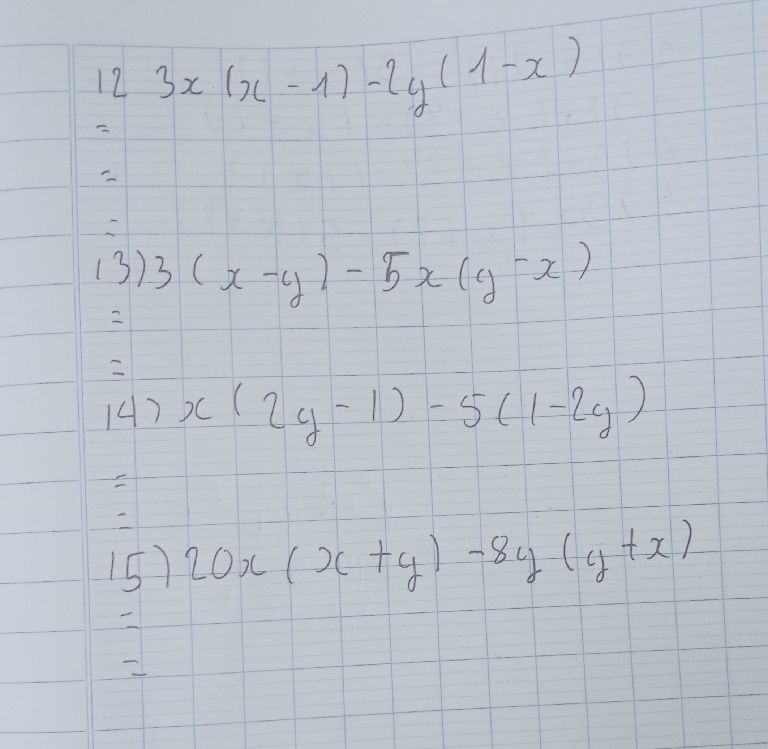 12 3x (x - 1) - 2y (1 - x)
=
=
=
13) 3 (x - y) - 5x (y - x)
=
=
14) x (2y - 1) - 5 (1 - 2y)
=
=
15) 20x (x + y) - 8y (y + x)
=
=